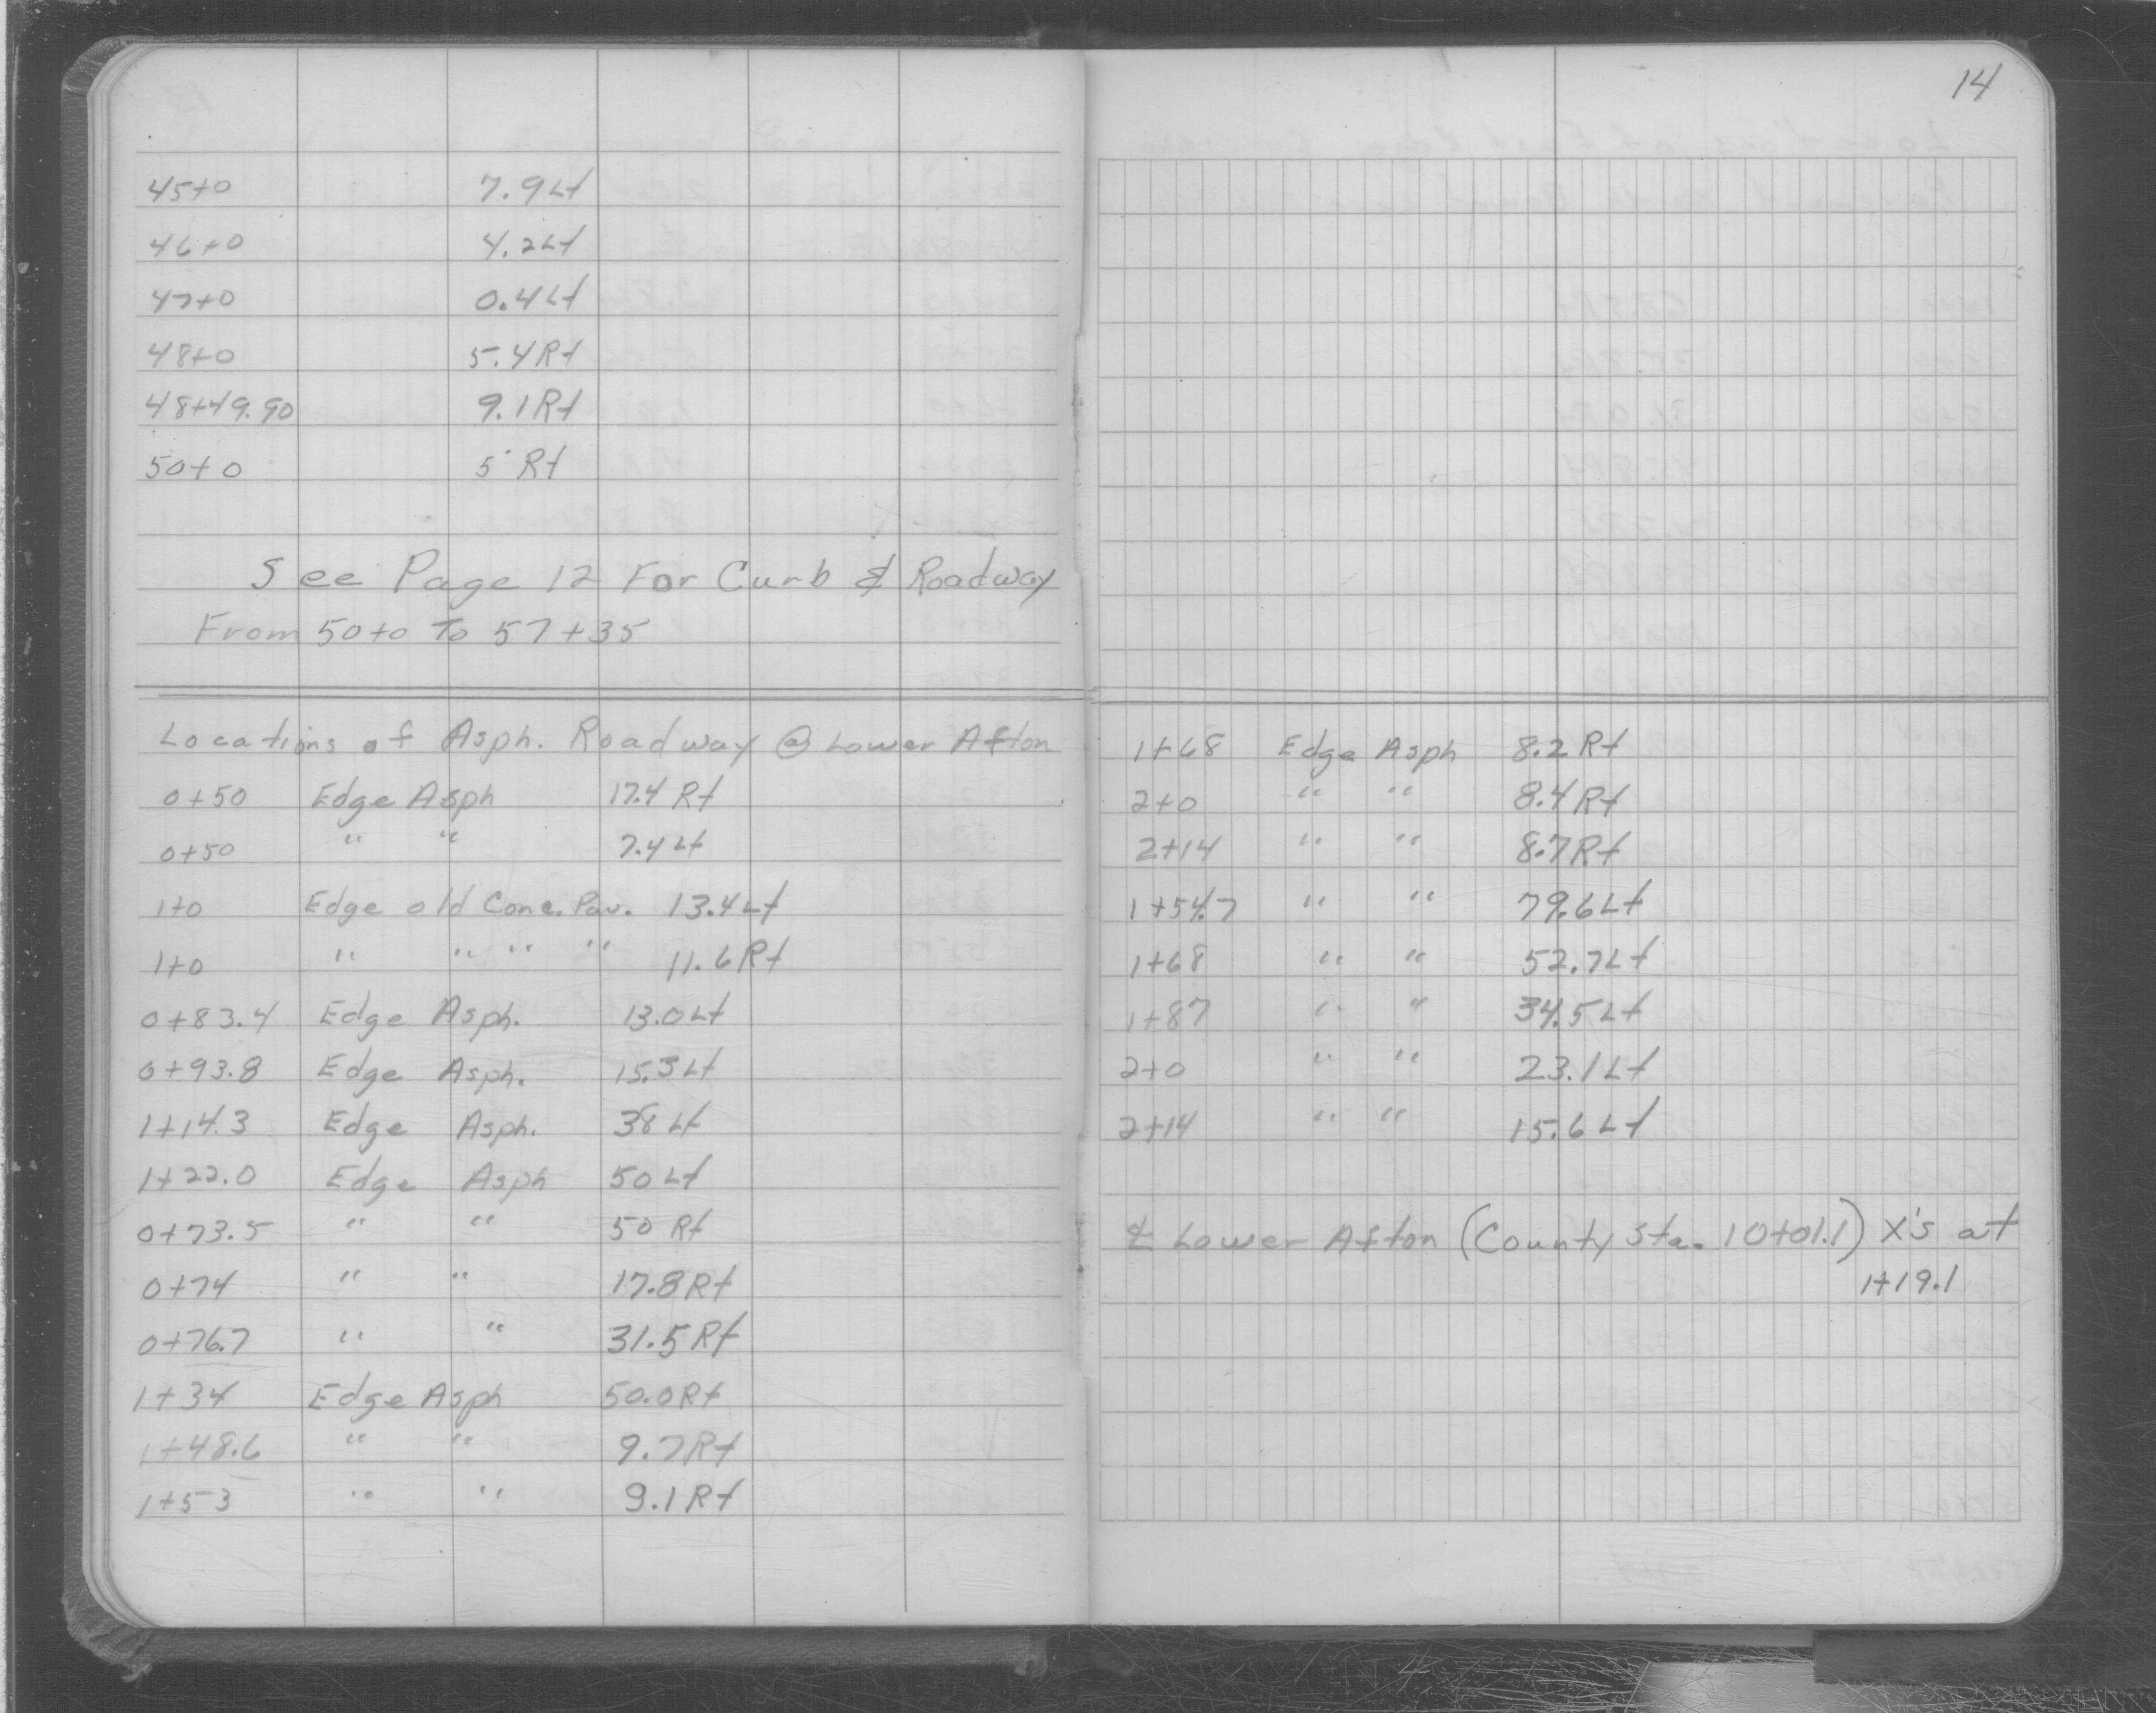 45+0 7.9 Lt
46+0 4.2 Lt
47+0 0.4 Lt
48+0 5.4 Rt
48+49.90 9.1 Rt
50+0 5' Rt
See Page 12 For Curb & Roadway
From 50+0 To 57+35
Locations of Asph. Roadway @ Lower Afton
0+50 Edge Asph 17.4 Rt
0+50 " " 7.4 Lt
1+0 Edge old Conc. Pav. 13.4 Lt
1+0 " " " " 11.6 Rt
0+83.4 Edge Asph. 13.0 Lt
0+93.8 Edge Asph. 15.3 Lt
1+14.3 Edge Asph. 38 Lt
1+22.0 Edge Asph 50 Lt
0+73.5 " " 50 Rt
0+74 " " 17.8 Rt
0+76.7 " " 31.5 Rt
1+34 Edge Asph 50.0 Rt
1+48.6 " " 9.7 Rt
1+53 " " 9.1 Rt
14
1+68 Edge Asph 8.2 Rt
2+0 " " 8.4 Rt
2+14 " " 8.7 Rt
1+54.7 " " 79.6 Lt
1+68 " " 52.7 Lt
1+87 " " 34.5 Lt
2+0 " " 23.1 Lt
2+14 " " 15.6 Lt
℄ Lower Afton (County Sta. 10+01.1) X's at
1+19.1